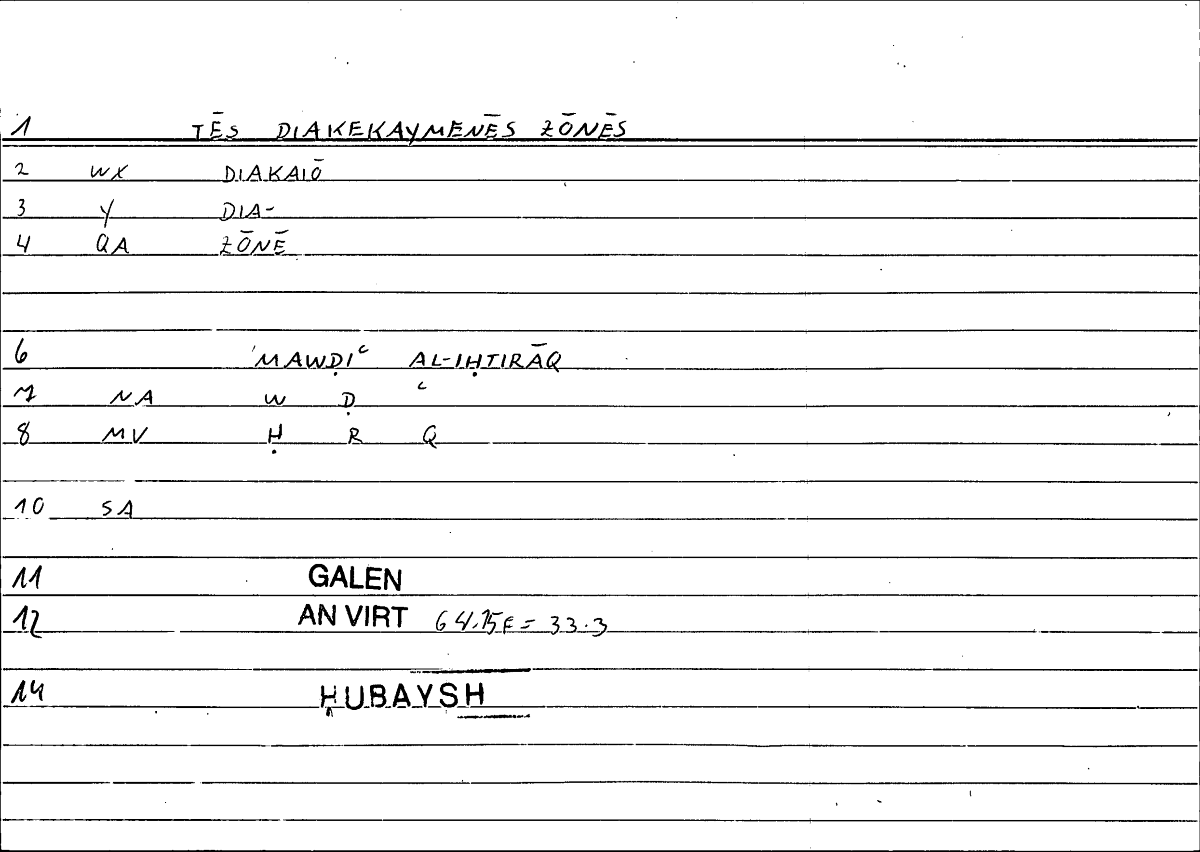 1 TĒS DIAKEKAYMENĒS ZŌNĒS
2 WX DIAKAIŌ
3 Y DIA-
4 QA ZŌNĒ
6 'MAWḌIʿ AL-IḤTIRĀQ
7 NA W Ḍ ʿ
8 MV Ḥ R Q
10 SA
11 GALEN
12 AN VIRT 64.15F = 33.3
14 ḤUBAYSH